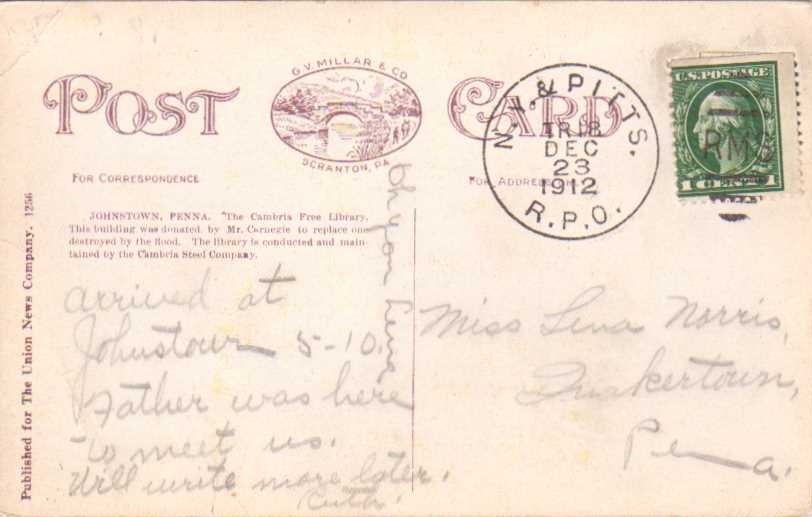 G.V. MILLAR & CO
SCRANTON, PA
POST CARD
FOR CORRESPONDENCE
FOR ADDRESS
N.Y. & PITTS.
TR 18
DEC
23
1912
R.P.O.
U.S. POSTAGE
RMS
1 CENT 1
JOHNSTOWN, PENNA. The Cambria Free Library.
This building was donated by Mr. Carnegie to replace one
destroyed by the flood. The library is conducted and main-
tained by the Cambria Steel Company.
Published for The Union News Company. 1256
arrived at
Johnstown 5-10.
Father was here
to meet us.
Will write more later.
Ruth.
Oh you Lena
Miss Lena Norris,
Quakertown,
Penna.